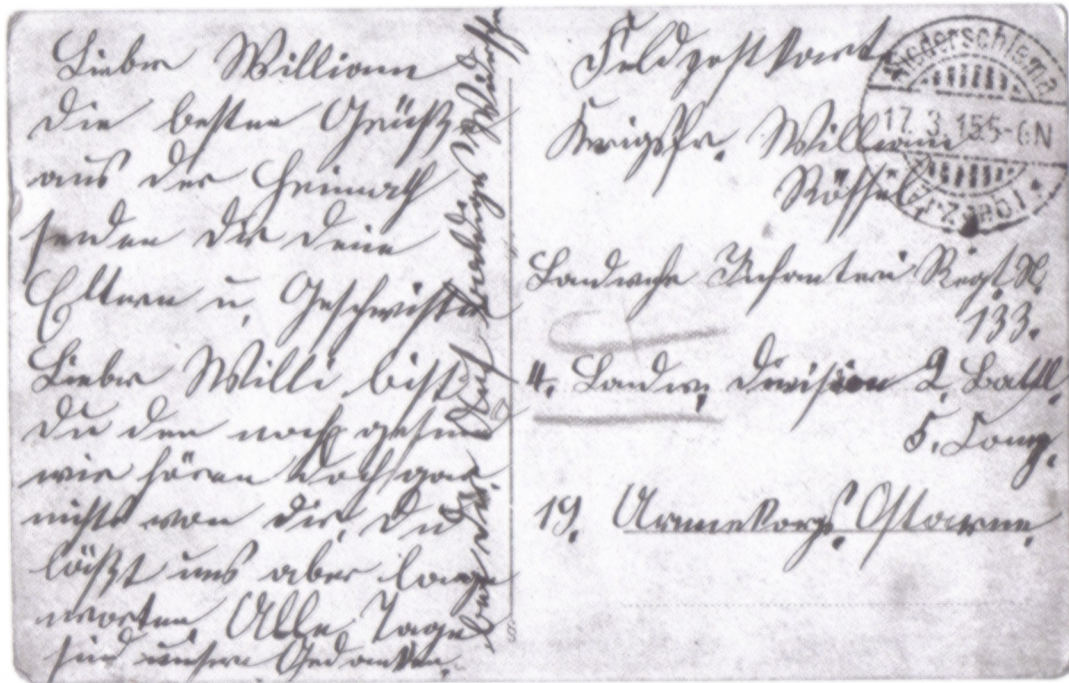 Lieber Williann
die besten Grüße
aus der Heimath
senden dir deine
Eltern u, Geschwister
Lieber Willi bist
du den noch gesund
wir hören doch gar
nichts von dir du
läßt uns aber lange
warten Alle Tage
sind unsere Gedanken
bei dir Auf baldiges Wiedersehn
Feldpostkarte
Niederschlema
17.3.15 5-6N
Krigsfr. Williann
Rößel
Landwehr Infanterie Regt. N.
133.
4. Landw, Division 2. Batll
5. Comp.
19. Armekorps. Ostarme